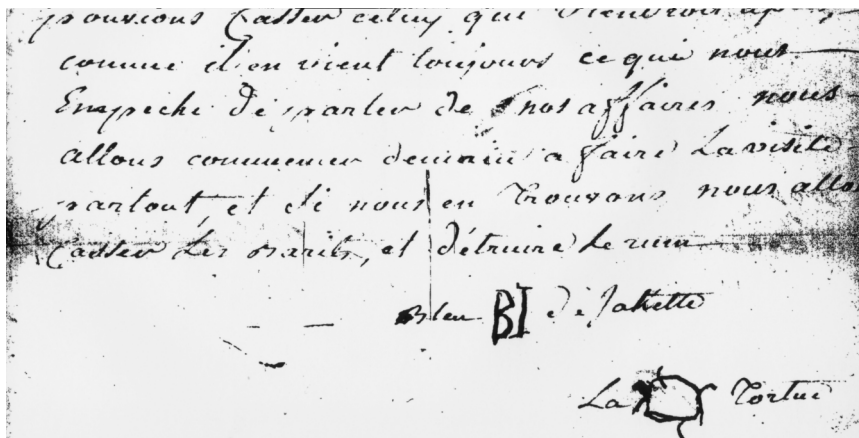 pouvions Casser celuy qui viendroit après
comme il en vient toujours ce qui nous
Empeche de parler de nos affaires nous
allons commencer demain a faire La visite
partout, et si nous en Trouvons nous allo
Casser Les barils, et détruire Le rum
Bleu BI de Jakette
La Tortue